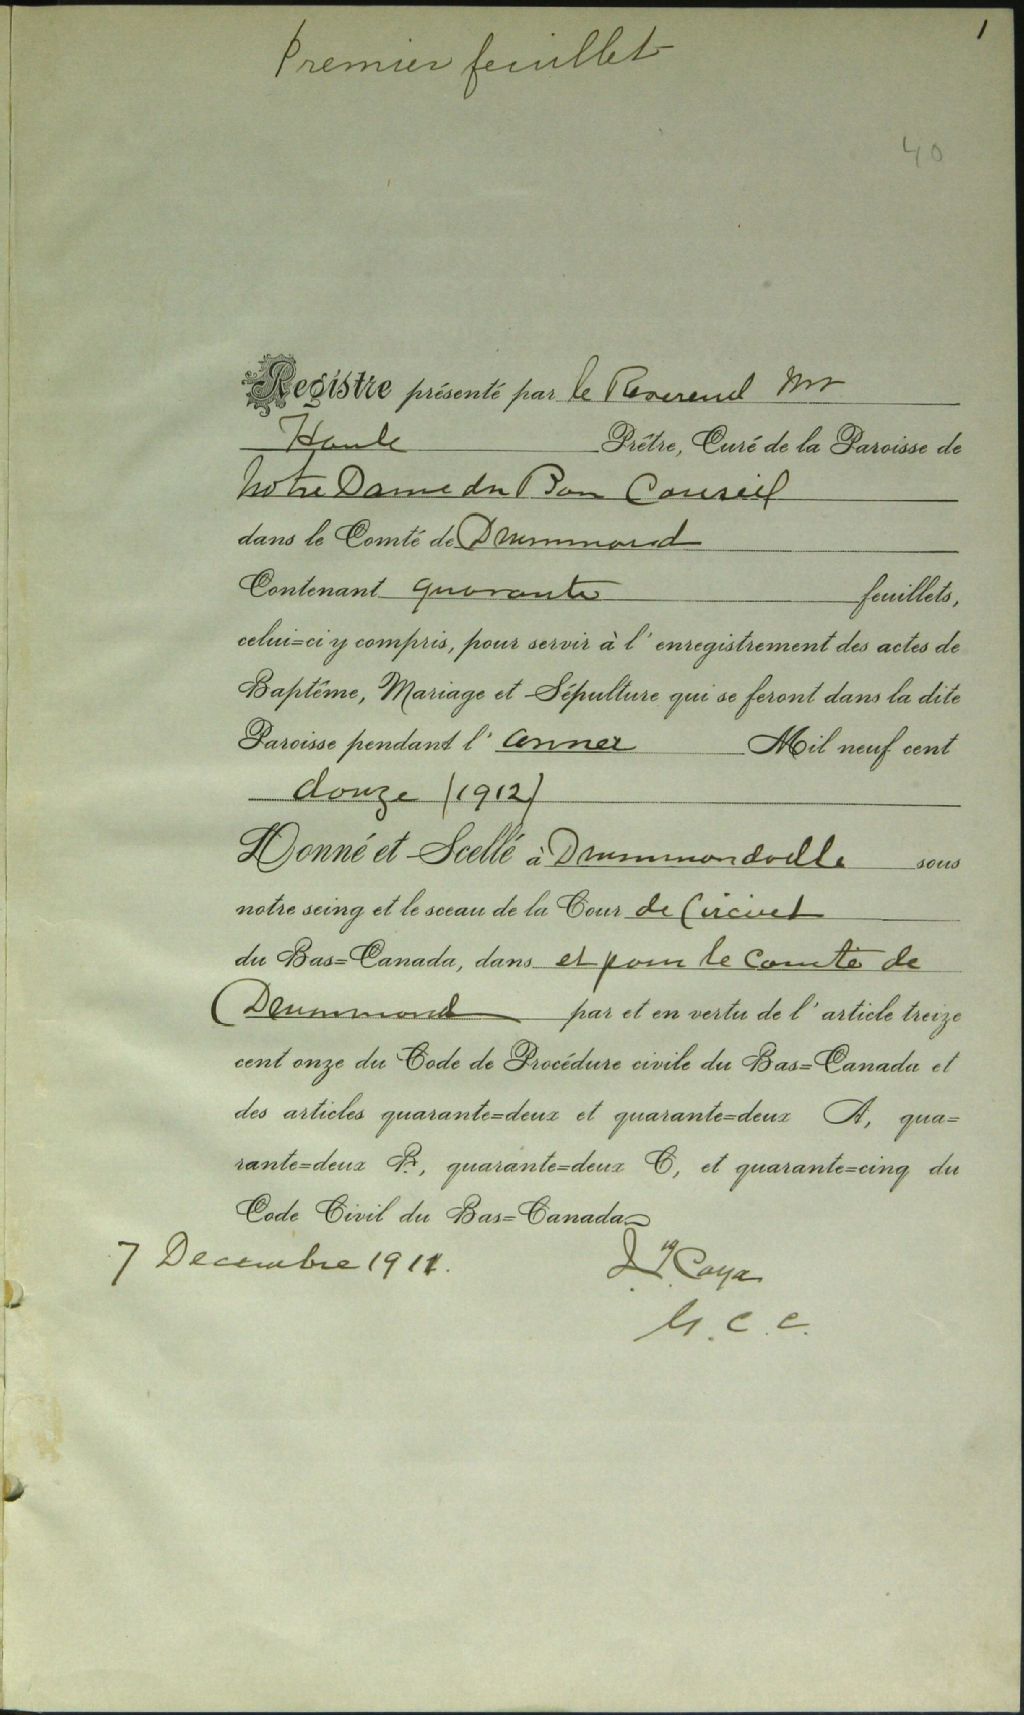 1
Premier feuillet
40
Registre présenté par le Reverend Mr
Houle Prêtre, Curé de la Paroisse de
Notre Dame du Bon Conseil
dans le Comté de Drummond
Contenant quarante feuillets,
celui=ci y compris, pour servir à l'enregistrement des actes de
Baptême, Mariage et Sépulture qui se feront dans la dite
Paroisse pendant l'annee Mil neuf cent
douze (1912)
Donné et Scellé à Drummondville sous
notre seing et le sceau de la Cour de Circuit
du Bas=Canada, dans et pour le Comté de
Drummond par et en vertu de l'article treize
cent onze du Code de Procédure civile du Bas=Canada et
des articles quarante=deux et quarante=deux A, qua=
rante=deux B, quarante=deux C, et quarante=cinq du
Code Civil du Bas=Canada
7 Decembre 1911.
Caya
G. C. C.